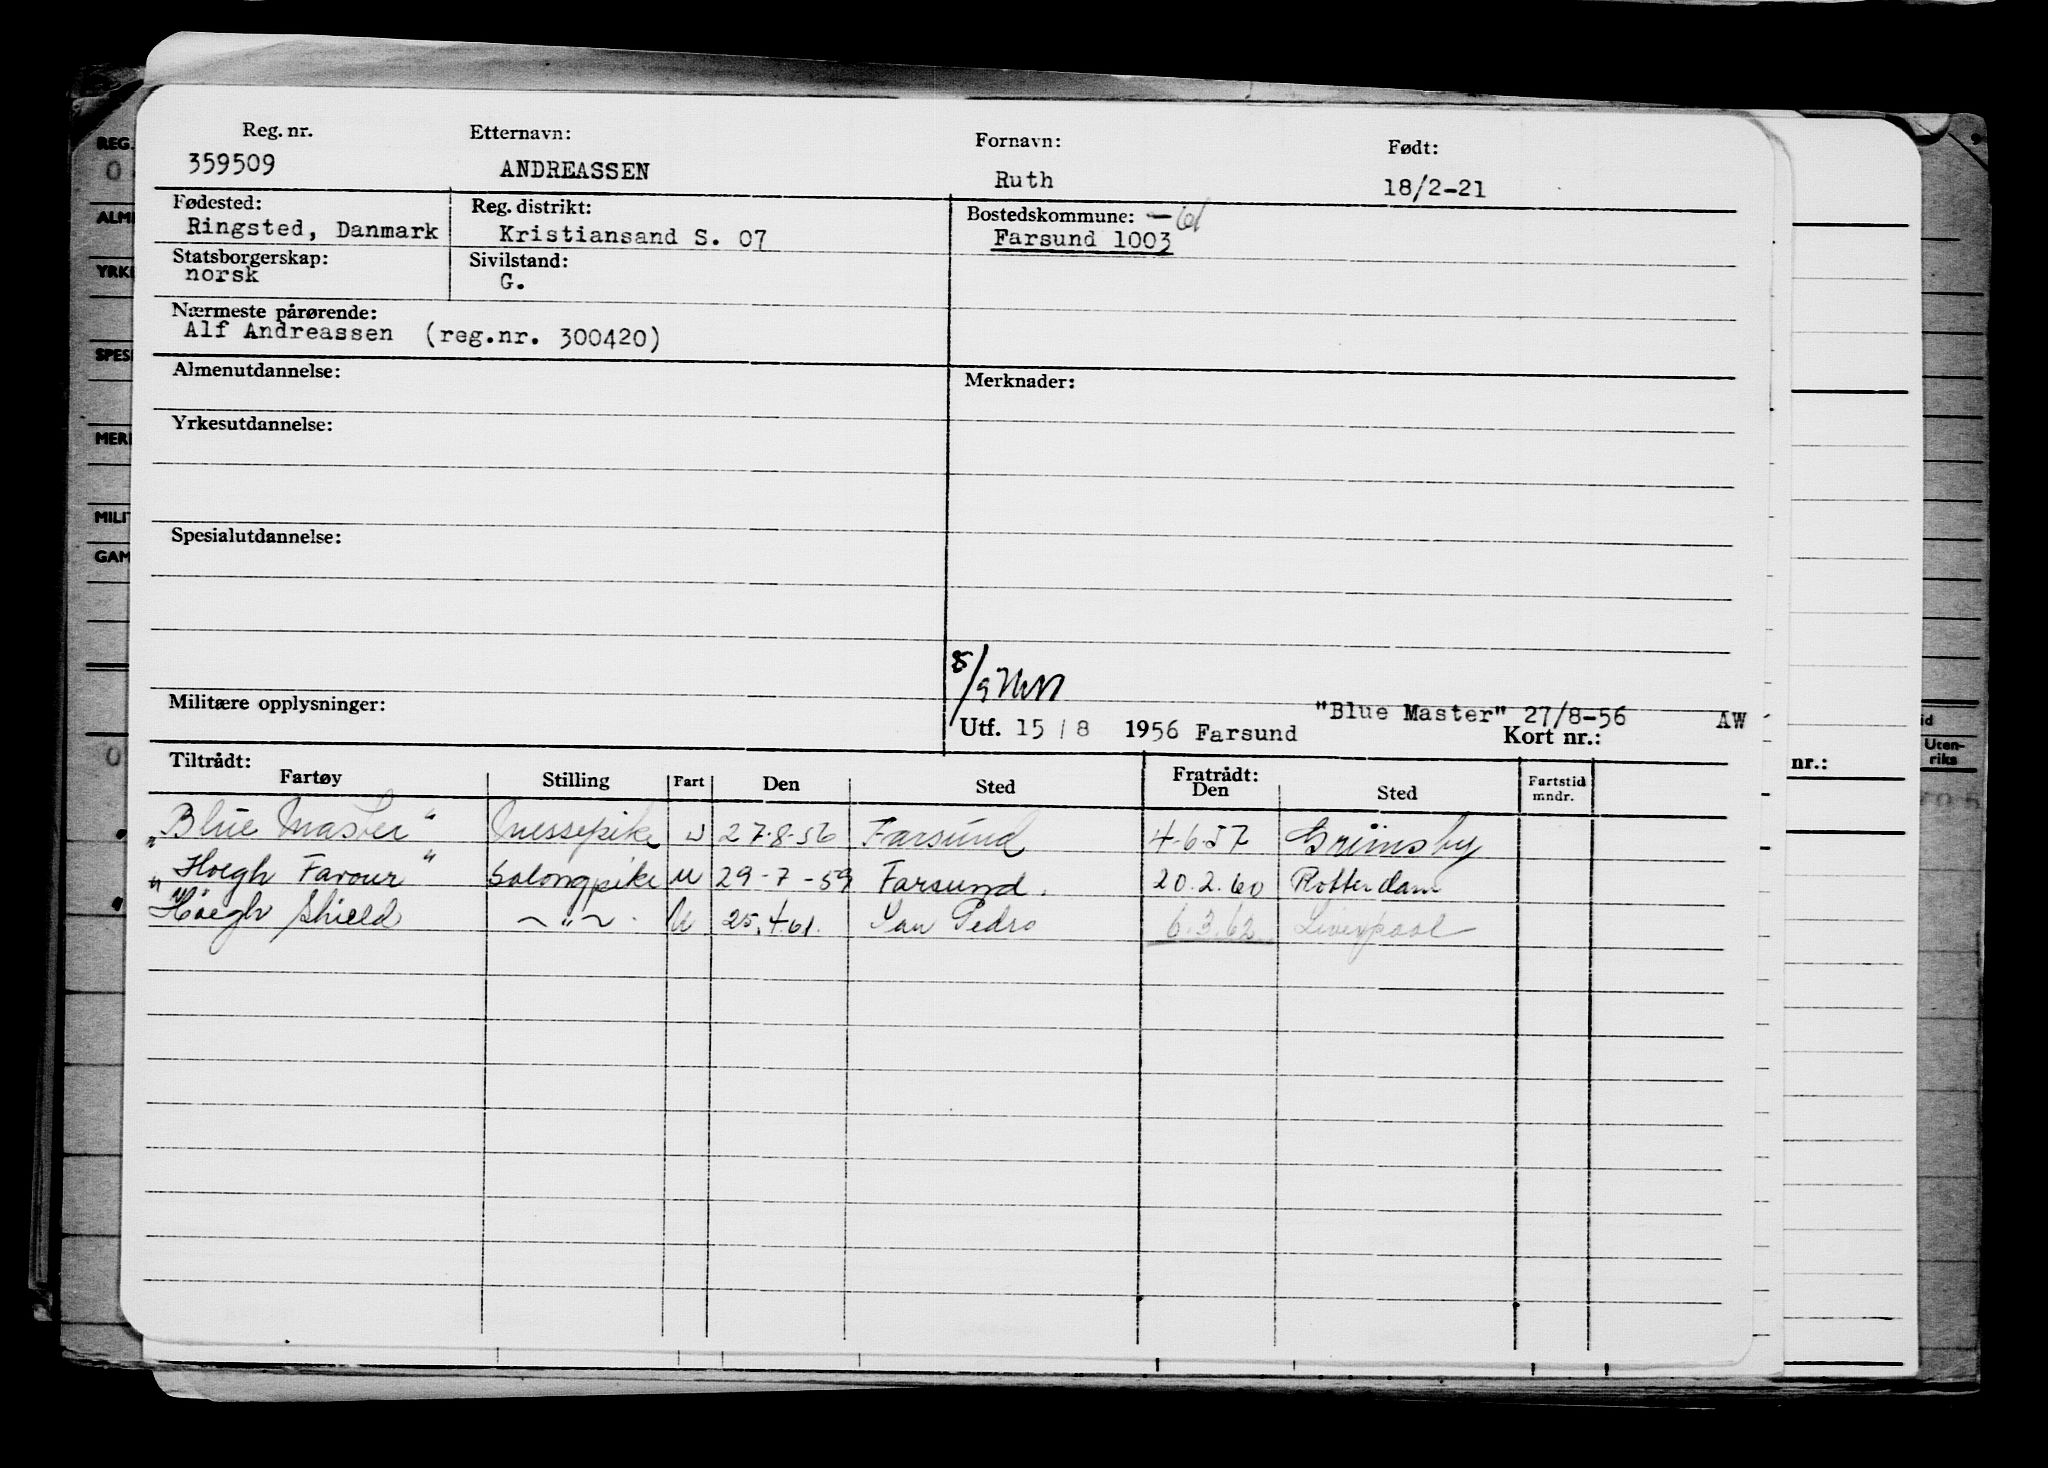 Reg. nr. Etternavn: Fornavn: Født:
359509 ANDREASSEN Ruth 18/2-21
Fødested: Reg. distrikt: Bostedskommune: -61
Ringsted, Danmark Kristiansand S. 07 Farsund 1003
Statsborgerskap: Sivilstand:
norsk G.
Nærmeste pårørende:
Alf Andreassen (reg.nr. 300420)
Almenutdannelse: Merknader:
Yrkesutdannelse:
Spesialutdannelse:
8/9
Militære opplysninger: "Blue Master" 27/8-56 AW
Utf. 15 / 8 1956 Farsund Kort nr.:
Tiltrådt: Fratrådt:
Fartøy Stilling Fart Den Sted Den Sted Fartstid mndr.
"Blue Master" Messepike u 27-8-56 Farsund 4-6-57 Grimsby
"Hoegh Favour" Salongpike u 29-7-59 Farsund. 20.2.60 Rotterdam
"Høegh Shield -"- u 25.4.61. San Pedro 6.3.62 Liverpool
REG.
0
ALM
YRK
SPES
MER
MILI
GAM
0
id
Uten-
riks
nr.: